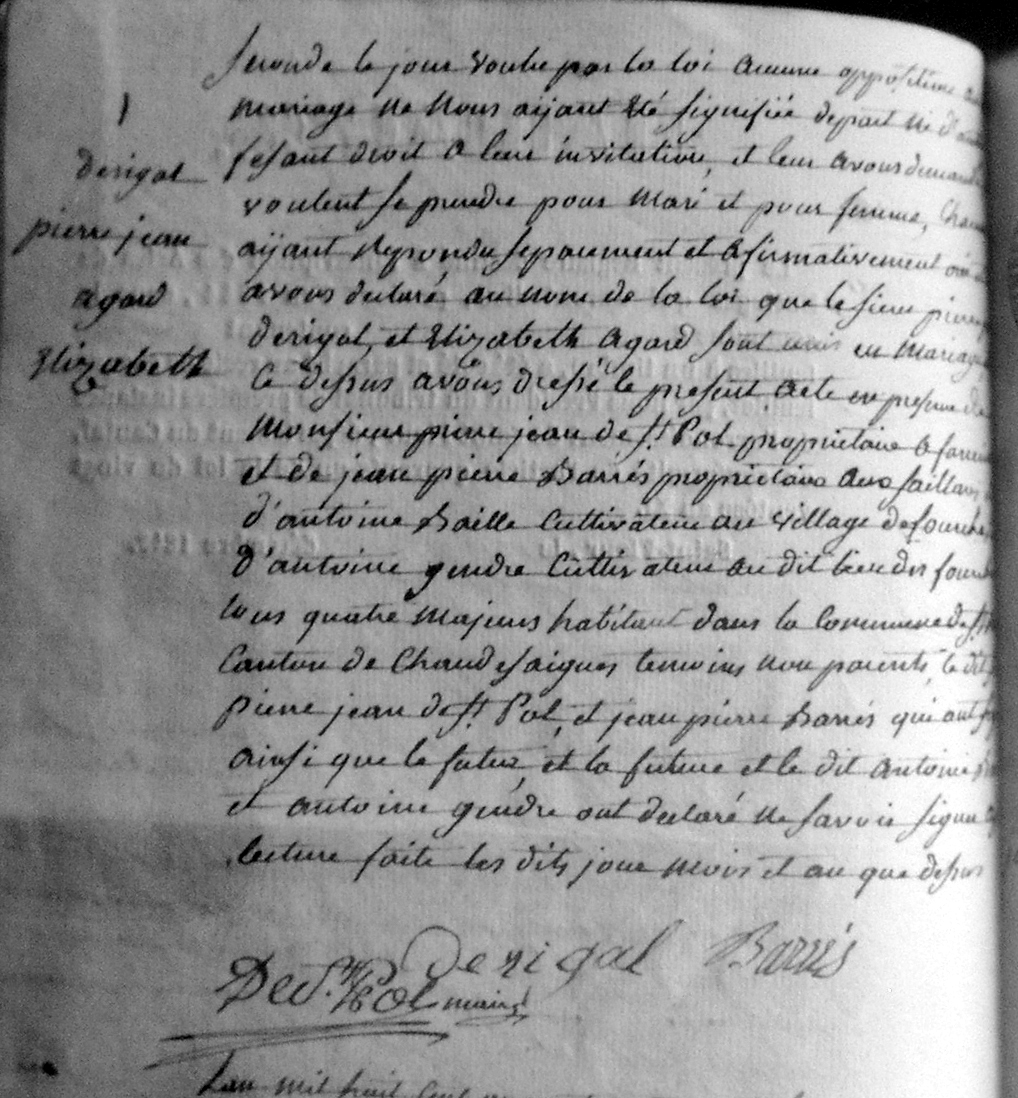 seconde le jour voulu par la loi aucune opposition au
mariage ne nous aijant été signifiée depart ni d'autre
fesant droit a leur invitation, et leur avons demandé
voulent se prendre pour mari et pour femme, Chacun
aijant repondu separement et afirmativement
avons declaré au nom de la loi que le sieur pierre
derigal, et Elizabeth agard sont unis en mariage
Ce dessus avons dressé le present acte en presence de
Monsieur pierre jean de St. Pol propriétaire a
et de jean pierre Barrés propriétaire aux
d'antoine Baille Cultivateur au village de
d'antoine gendre Cultivateur au dit lieu des
tous quatre majeurs habitant dans la Commune de St
Canton de Chaudesaigues temoins non parents, le dit
pierre jean de St Pol, et jean pierre Barrés qui ont
ainsi que le futur, et la future et le dit antoine
et antoine gendre ont declaré ne savoir signer
lecture faite les dits jour mois et an que dessus
derigal
pierre jean
agard
Elizabeth
De St. Pol maire
Derigal
Barrés
Lan mil huit Cent